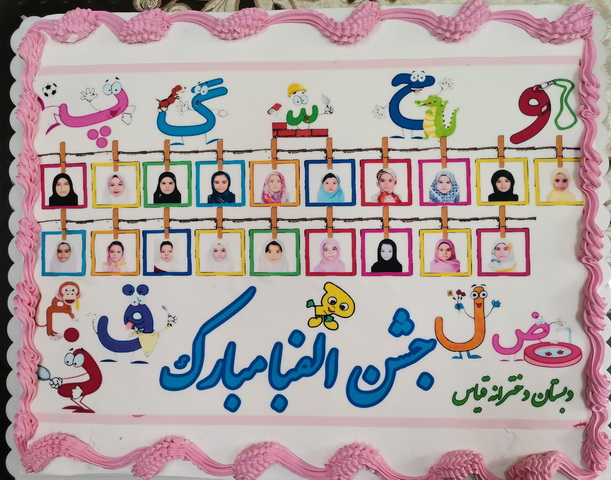 و ح س گ پ
ض ل ق
جشن الفبا مبارک
دبستان دخترانه قیاس